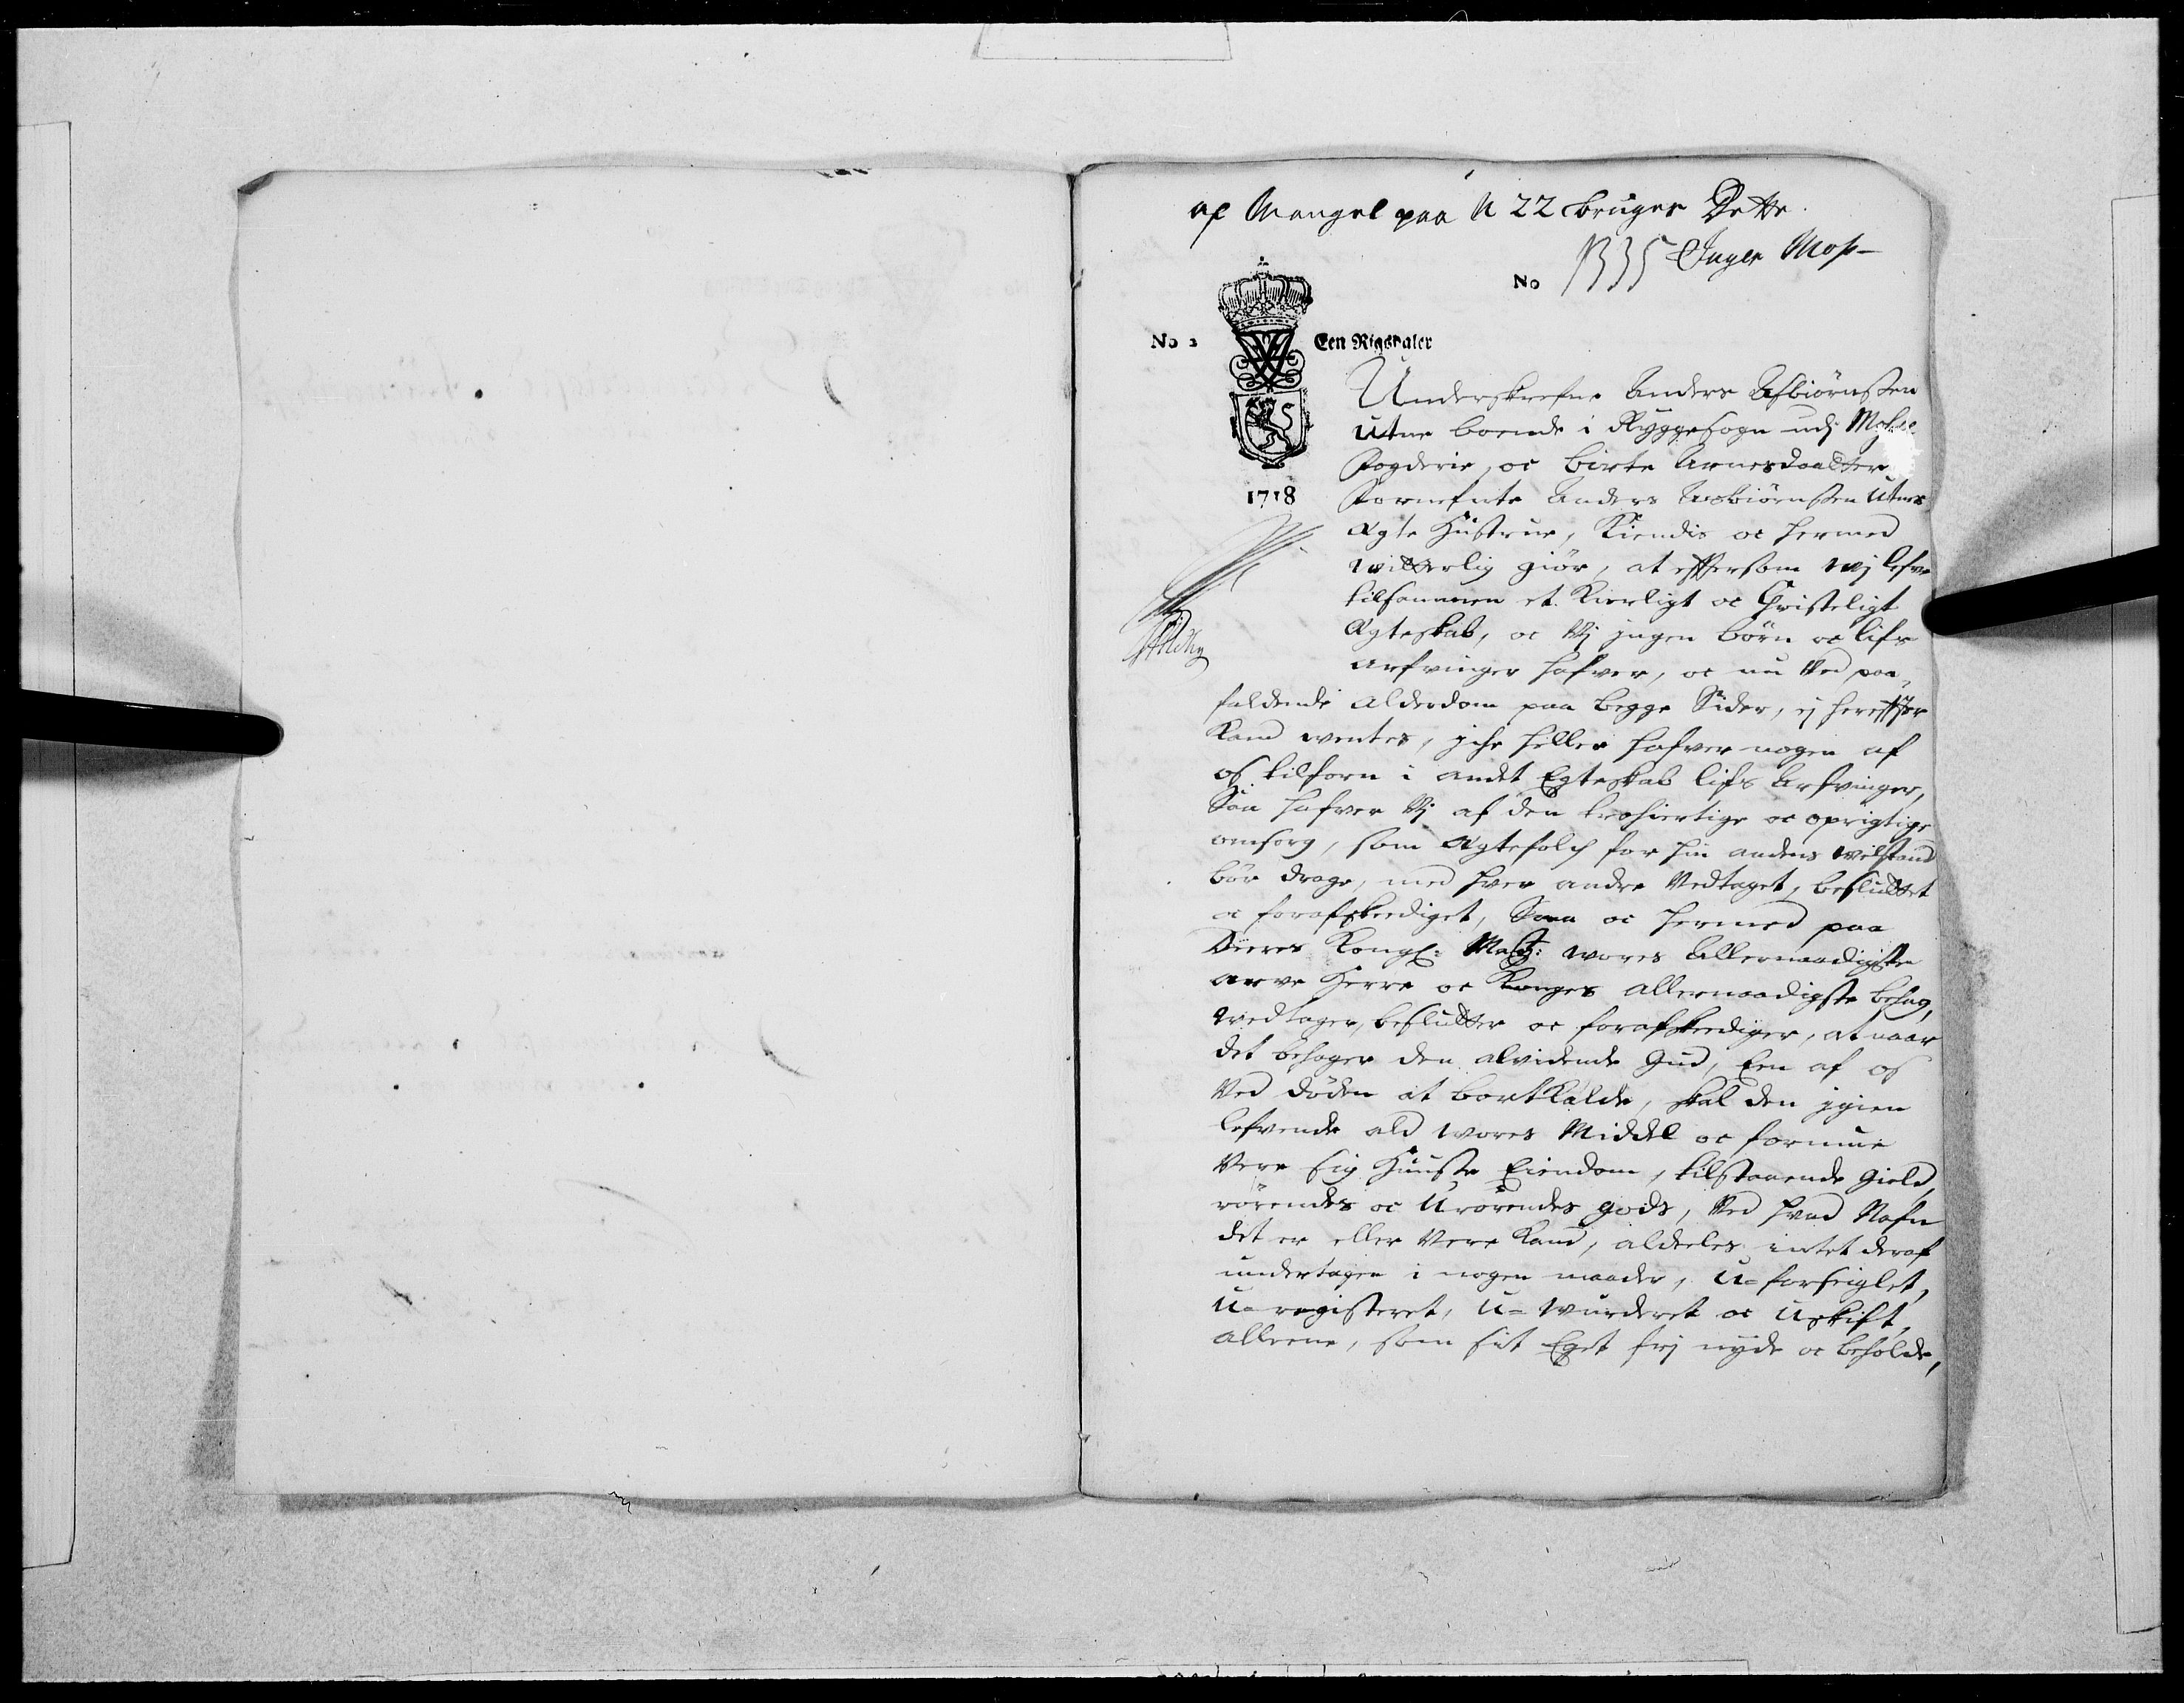 af Mangel paa N 22 bruges Dette.
No 1335 Inger Moss
No 2 Een Rigsdaler
1718
Underskrefne Anders Asbiørnssen
Utne boende i Ryggesogn udj Mosse
Fogderie, oc Birte Arnesdaatter
Fornefnte Anders Asbiørnssen Utnes
Ægte Hustrue, Kiendis oc hermed
witterlig giør, at effter som wj lefve
tilsammen et Kierligt oc Christeligt
Ægteskab, oc Vj jngen børn oc lifs
arfvinger hafver, oc nu Ved paa-
faldende alderdom paa begge Sider, ej hereffter
Kand wentes, jche heller hafver nogen af
os tilforn i andet Egteskab lifs Arfvinger,
Saa hafver Vj af den trohiertige oc oprigtige
omsorg, som Ægtefolch for hin anden wilstand
bør drage, med hver andre Vedtaget, besluttet
oc forafskeediget, Saa oc hermed paa
Deres Kongl: Mayts: wores Allernaadigste
arve Herre oc Konges allernaadigste behag,
wedtager, beslutter oc forafskeediger, at naar
det behager den alvidende Gud, Een af os
Ved døden at bortkalde, skal den jgien
lefvende ald wores Middel oc formue
Vere sig Huuse Eiendom, tilstaaende Gield,
rørendes oc Urørendes gods, Ved hvad Nafn
det er eller Vere Kand, aldeeles intet deraf
undertagen i nogen maader, U=forseiglet,
U=registeret, U=wurderet oc Uskift,
alleene, som sit Eget frj nyde oc beholde,